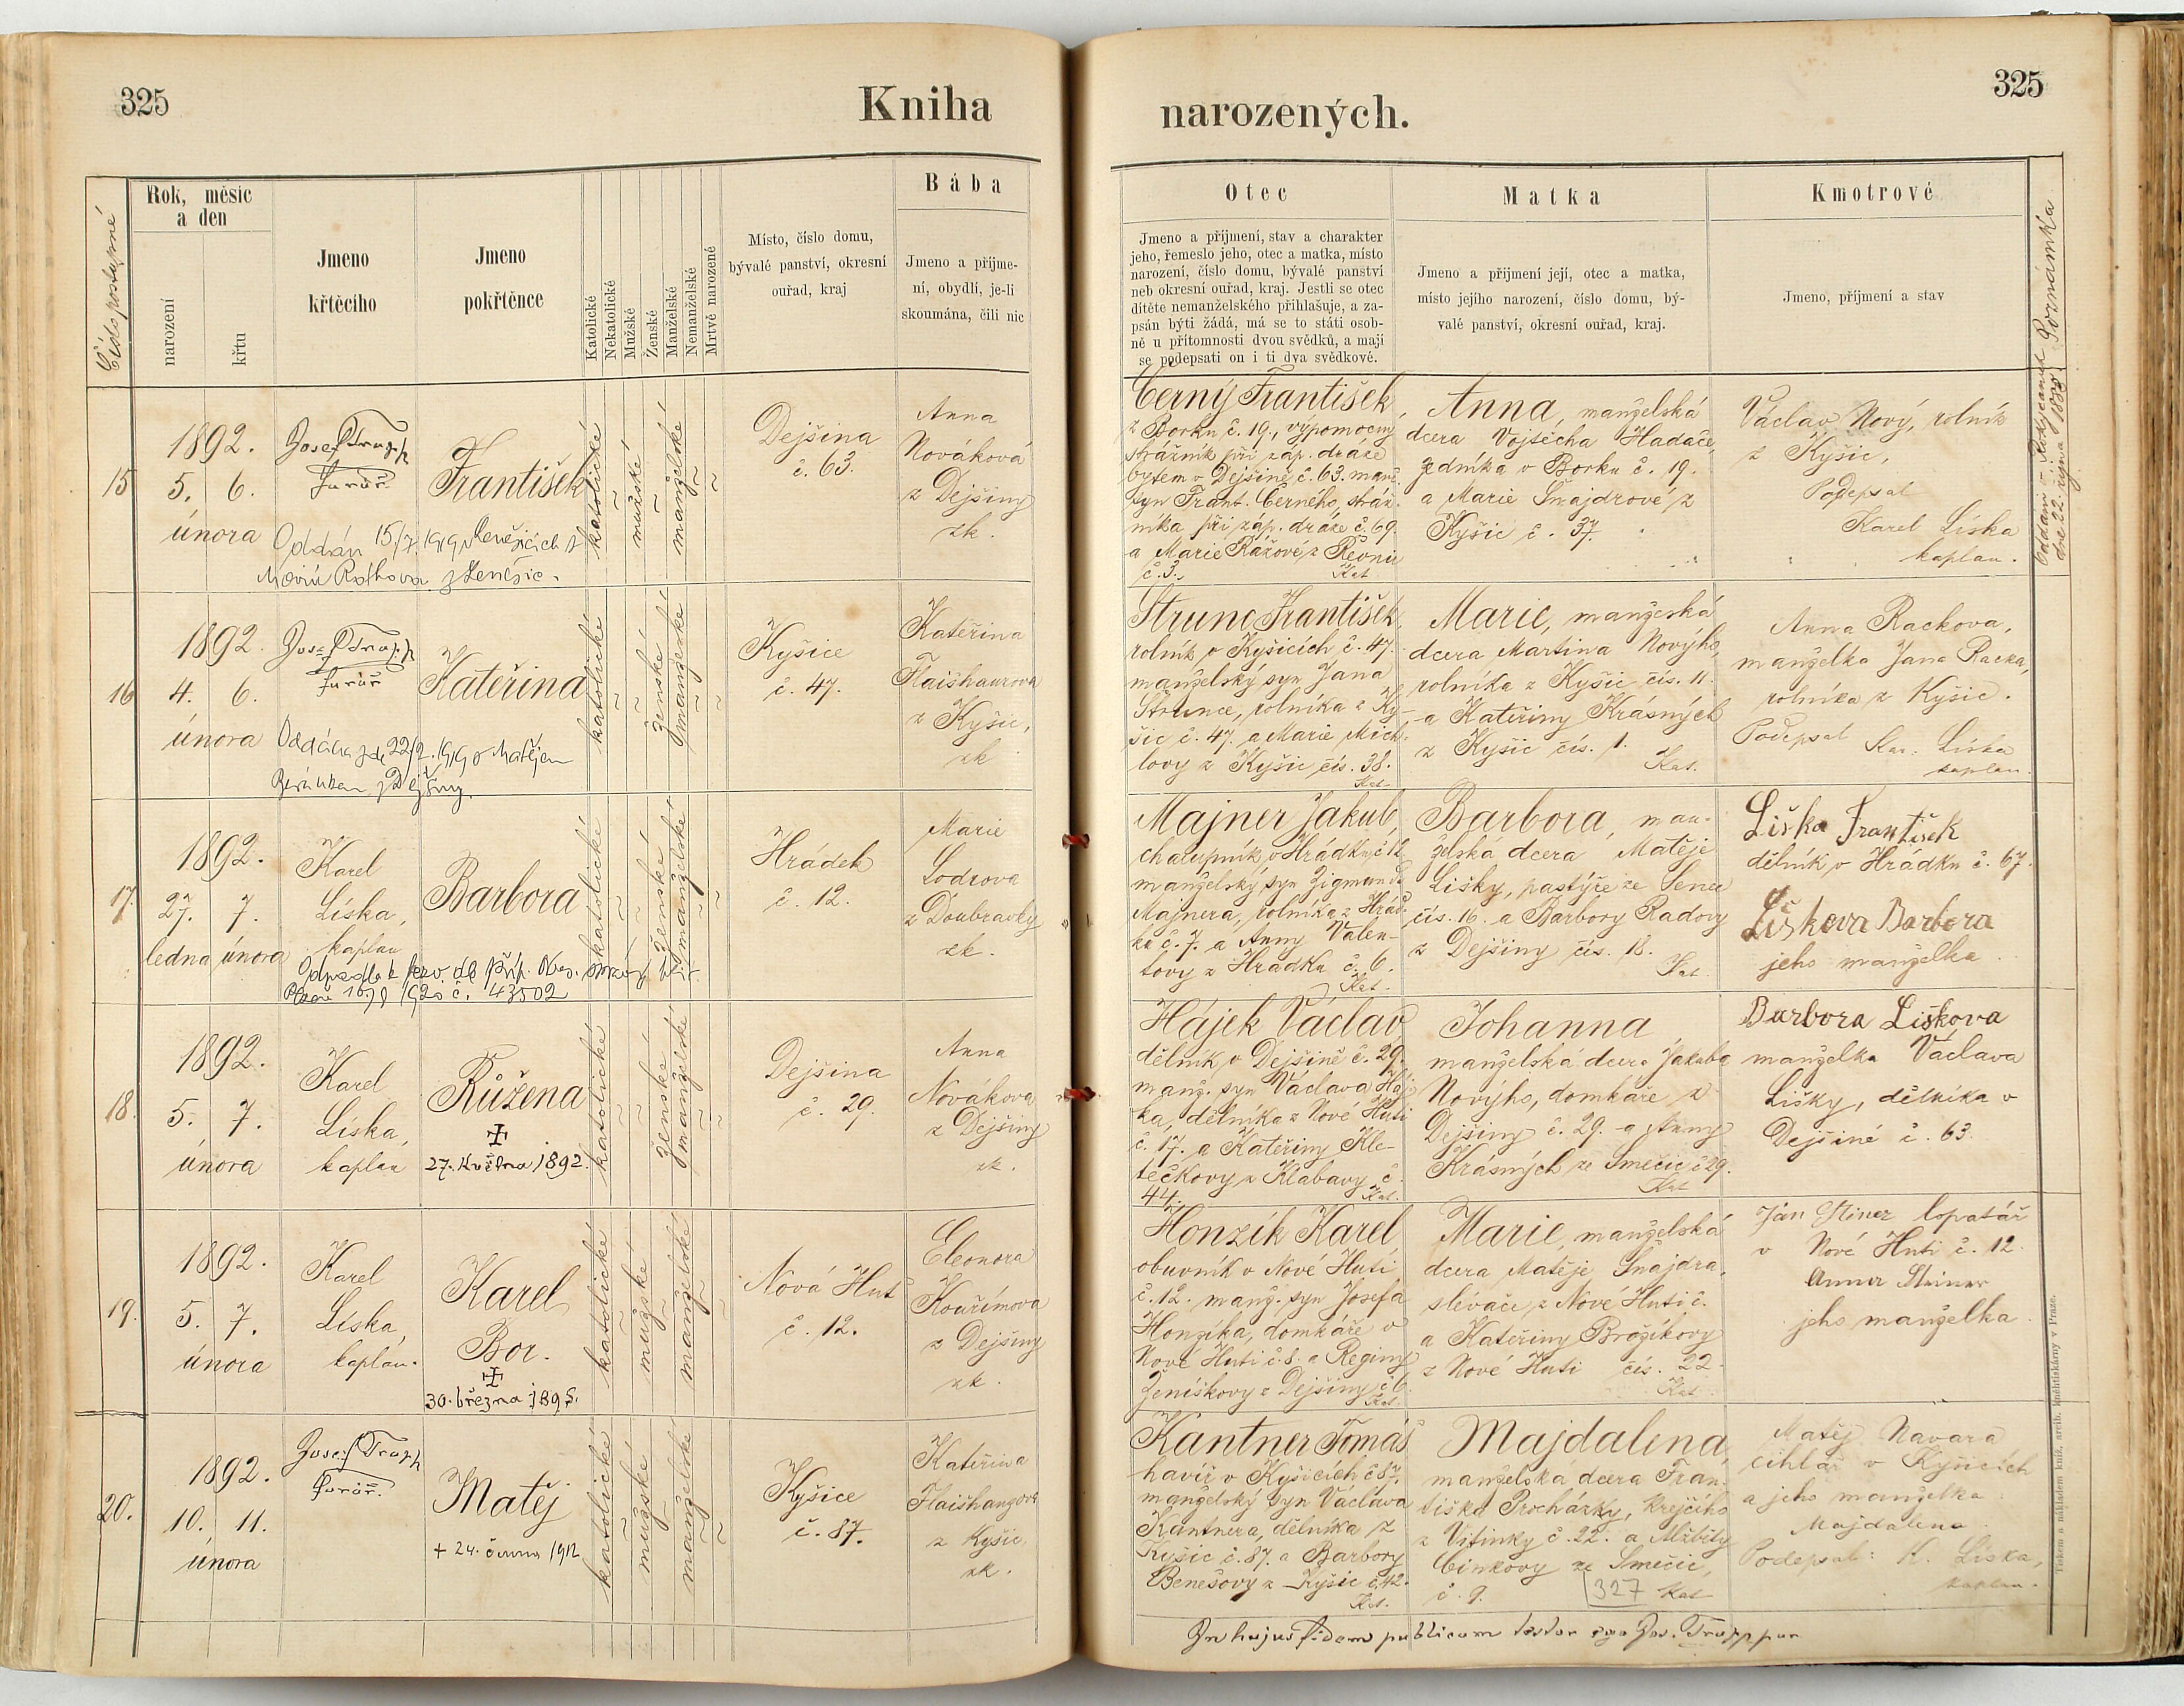 325
Kniha
narozených.
325
Číslo postupné
Rok, měsíc
a den
narození
křtu
Jmeno
křtěcího
Jmeno
pokřtěnce
Katolické
Nekatolické
Mužské
Ženské
Manželské
Nemanželské
Mrtvě narozené
Místo, číslo domu,
bývalé panství, okresní
ouřad, kraj
Bába
Jmeno a příjme-
ní, obydlí, je-li
skoumána, čili nic
Otec
Jmeno a příjmení, stav a charakter
jeho, řemeslo jeho, otec a matka, místo
narození, číslo domu, bývalé panství
neb okresní ouřad, kraj. Jestli se otec
dítěte nemanželského přihlašuje, a za-
psán býti žádá, má se to státi osob-
ně u přítomnosti dvou svědků, a mají
se podepsati on i ti dva svědkové.
Matka
Jmeno a příjmení její, otec a matka,
místo jejího narození, číslo domu, bý-
valé panství, okresní ouřad, kraj.
Kmotrové
Jmeno, příjmení a stav
Poznámka
15
1892.
5. 6.
února
Josef Trapp
farář.
František
katolické
mužské
manželské
Dejšina
č. 63.
Anna
Nováková
z Dejšiny
zk.
Oddán 15./7. 1919
Černý František,
z Borku č. 19., výpomocný
strážník při záp. dráze
bytem v Dejšině č. 63. manž.
syn Frant. Černého, stráž-
níka při záp. dráze č. 69.
a Marie Rážové z Řevnic
č. 3.
Kat.
Anna, manželská
dcera Vojtěcha Hadače,
zedníka v Borku č. 19.
a Marie Šnajdrové z
Kyšic č. 37.
Václav Nový, rolník
z Kyšic,
Podepsal
Karel Líska
kaplan.
dne 22. října 1888
16
1892.
4. 6.
února
Josef Trapp
farář
Kateřina
katolické
ženské
manželské
Kyšice
č. 47.
Kateřina
Flaišhansová
z Kyšic,
zk
Oddána zde 22/2. 1919 s Matějem
Beránkem z Dejšiny.
Strunc František,
rolník v Kyšicích č. 47.
manželský syn Jana
Strunce, rolníka z Ky-
šic č. 47. a Marie Mich-
lovy z Kyšic čís. 38.
Kat.
Marie, manželská
dcera Martina Novýho,
rolníka z Kyšic čís. 11.
a Kateřiny Krásných
z Kyšic čís. 1.
Kat.
Anna Rackova,
manželka Jana Racka,
rolníka z Kyšic.
Podepsal Kar. Líska
kaplan.
17.
1892.
27. 7.
ledna února
Karel
Líska,
kaplan
Barbora
katolické
ženské
manželské
Hrádek
č. 12.
Marie
Lodrova
z Doubravky
zk.
1920 č. 43502
Majner Jakub,
chalupník v Hrádku č. 12
manželský syn Zigmunda
Majnera, rolníka z Hrád-
ku č. 7. a Anny Valen-
tovy z Hrádku č. 6.
Kat.
Barbora, man-
želská dcera Matěje
Lišky, pastýře ze Senec
čís. 16. a Barbory Radovy
z Dejšiny čís. 18.
Kat.
Liška František
dělník v Hrádku č. 67.
Liškova Barbora
jeho manželka.
18.
1892.
5. 7.
února
Karel
Líska,
kaplan
Růžena
27. května 1892.
katolické
ženské
manželské
Dejšina
č. 29.
Anna
Nováková
z Dejšiny
zk.
Hájek Václav
dělník v Dejšině č. 29.
manž. syn Václava Háj-
ka, dělníka z Nové Huti
č. 17. a Kateřiny Kle-
tečkovy z Klabavy č.
44. Kat.
Johanna
manželská dcera Jakuba
Novýho, domkáře z
Dejšiny č. 29. a Anny
Krásných ze Smečic č 29.
Kat
Barbora Liškova
manželka Václava
Lišky, dělníka v
Dejšině č. 63.
19.
1892.
5. 7.
února
Karel
Líska,
kaplan.
Karel
Bor.
30. března 1895.
katolické
mužské
manželské
Nová Huť
č. 12.
Eleonora
Kouřímova
z Dejšiny
zk.
Honzík Karel
obuvník v Nové Huti
č. 12. manž. syn Josefa
Honzíka, domkáře v
Nové Huti č. 8. a Reginy
Ženíškovy z Dejšiny č 6.
Kat
Marie, manželská
dcera Matěje Šnajdra,
slévače z Nové Huti č.
a Kateřiny Brožíkovy
z Nové Huti čís. 22.
Kat.
Ján Stiner lopatář
v Nové Huti č. 12.
Anna Steiner
jeho manželka.
20.
1892.
10. 11.
února
Josef Trapp
farář.
Matěj
+ 24. června 1912
katolické
mužské
manželské
Kyšice
č. 87.
Kateřina
Flaišhansová
z Kyšic,
zk.
Kantner Tomáš
havíř v Kyšicích č 87.
manželský syn Václava
Kantnera, dělníka z
Kyšic č. 87. a Barbory
Benešovy z Kyšic č. 42.
Kat.
Majdalena,
manželská dcera Fran-
tiška Procházky, krejčího
z Vitinky č. 22. a Alžběty
Cinkovy ze Smečic,
č. 9. 327 Kat
Matěj Navara
cihlář v Kyšicích
a jeho manželka
Majdalena
Podepsal: K. Líska,
kaplan.
In hujus fidem publicam testor ego Jos. Trapp par
Tiskem a nákladem kníž. arcib. knihtiskárny v Praze.